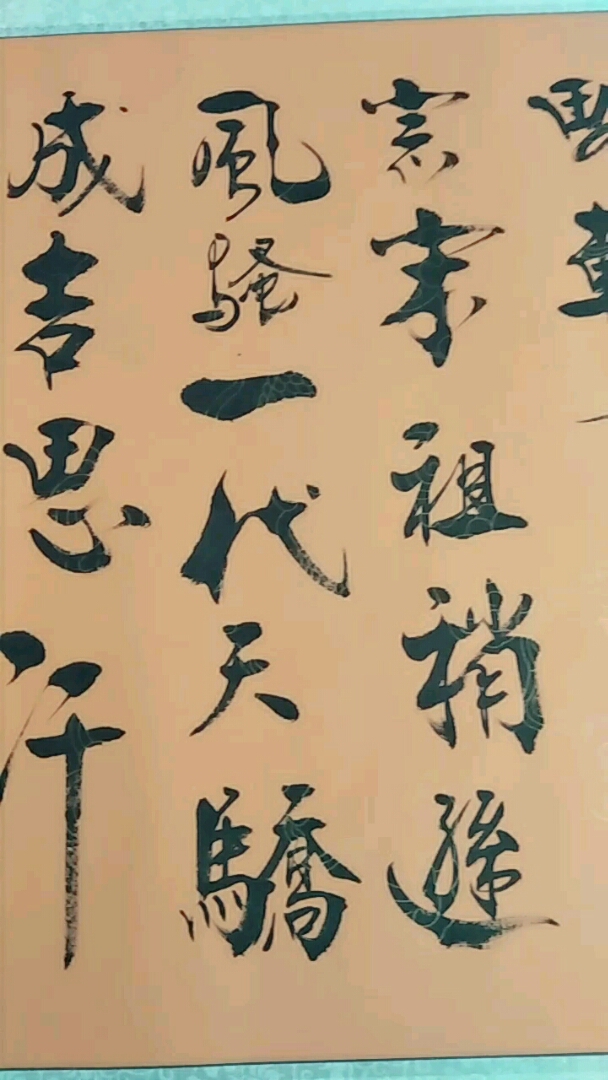 宗宋祖稍遜
風騷一代天驕
成吉思汗